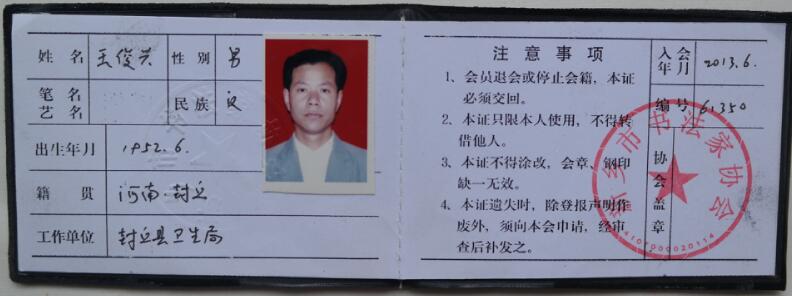 姓名 王俊兴 性别 男
笔名
艺名
民族 汉
出生年月 1952.6.
籍贯 河南·封丘
工作单位 封丘县卫生局
注意事项
1、会员退会或停止会籍，本证
必须交回。
2、本证只限本人使用，不得转
借他人。
3、本证不得涂改，会章、钢印
缺一无效。
4、本证遗失时，除登报声明作
废外，须向本会申请，经审
查后补发之。
入会
年月
2013.6.
编号 61350
协会盖章
新乡市书法家协会
4107000020114